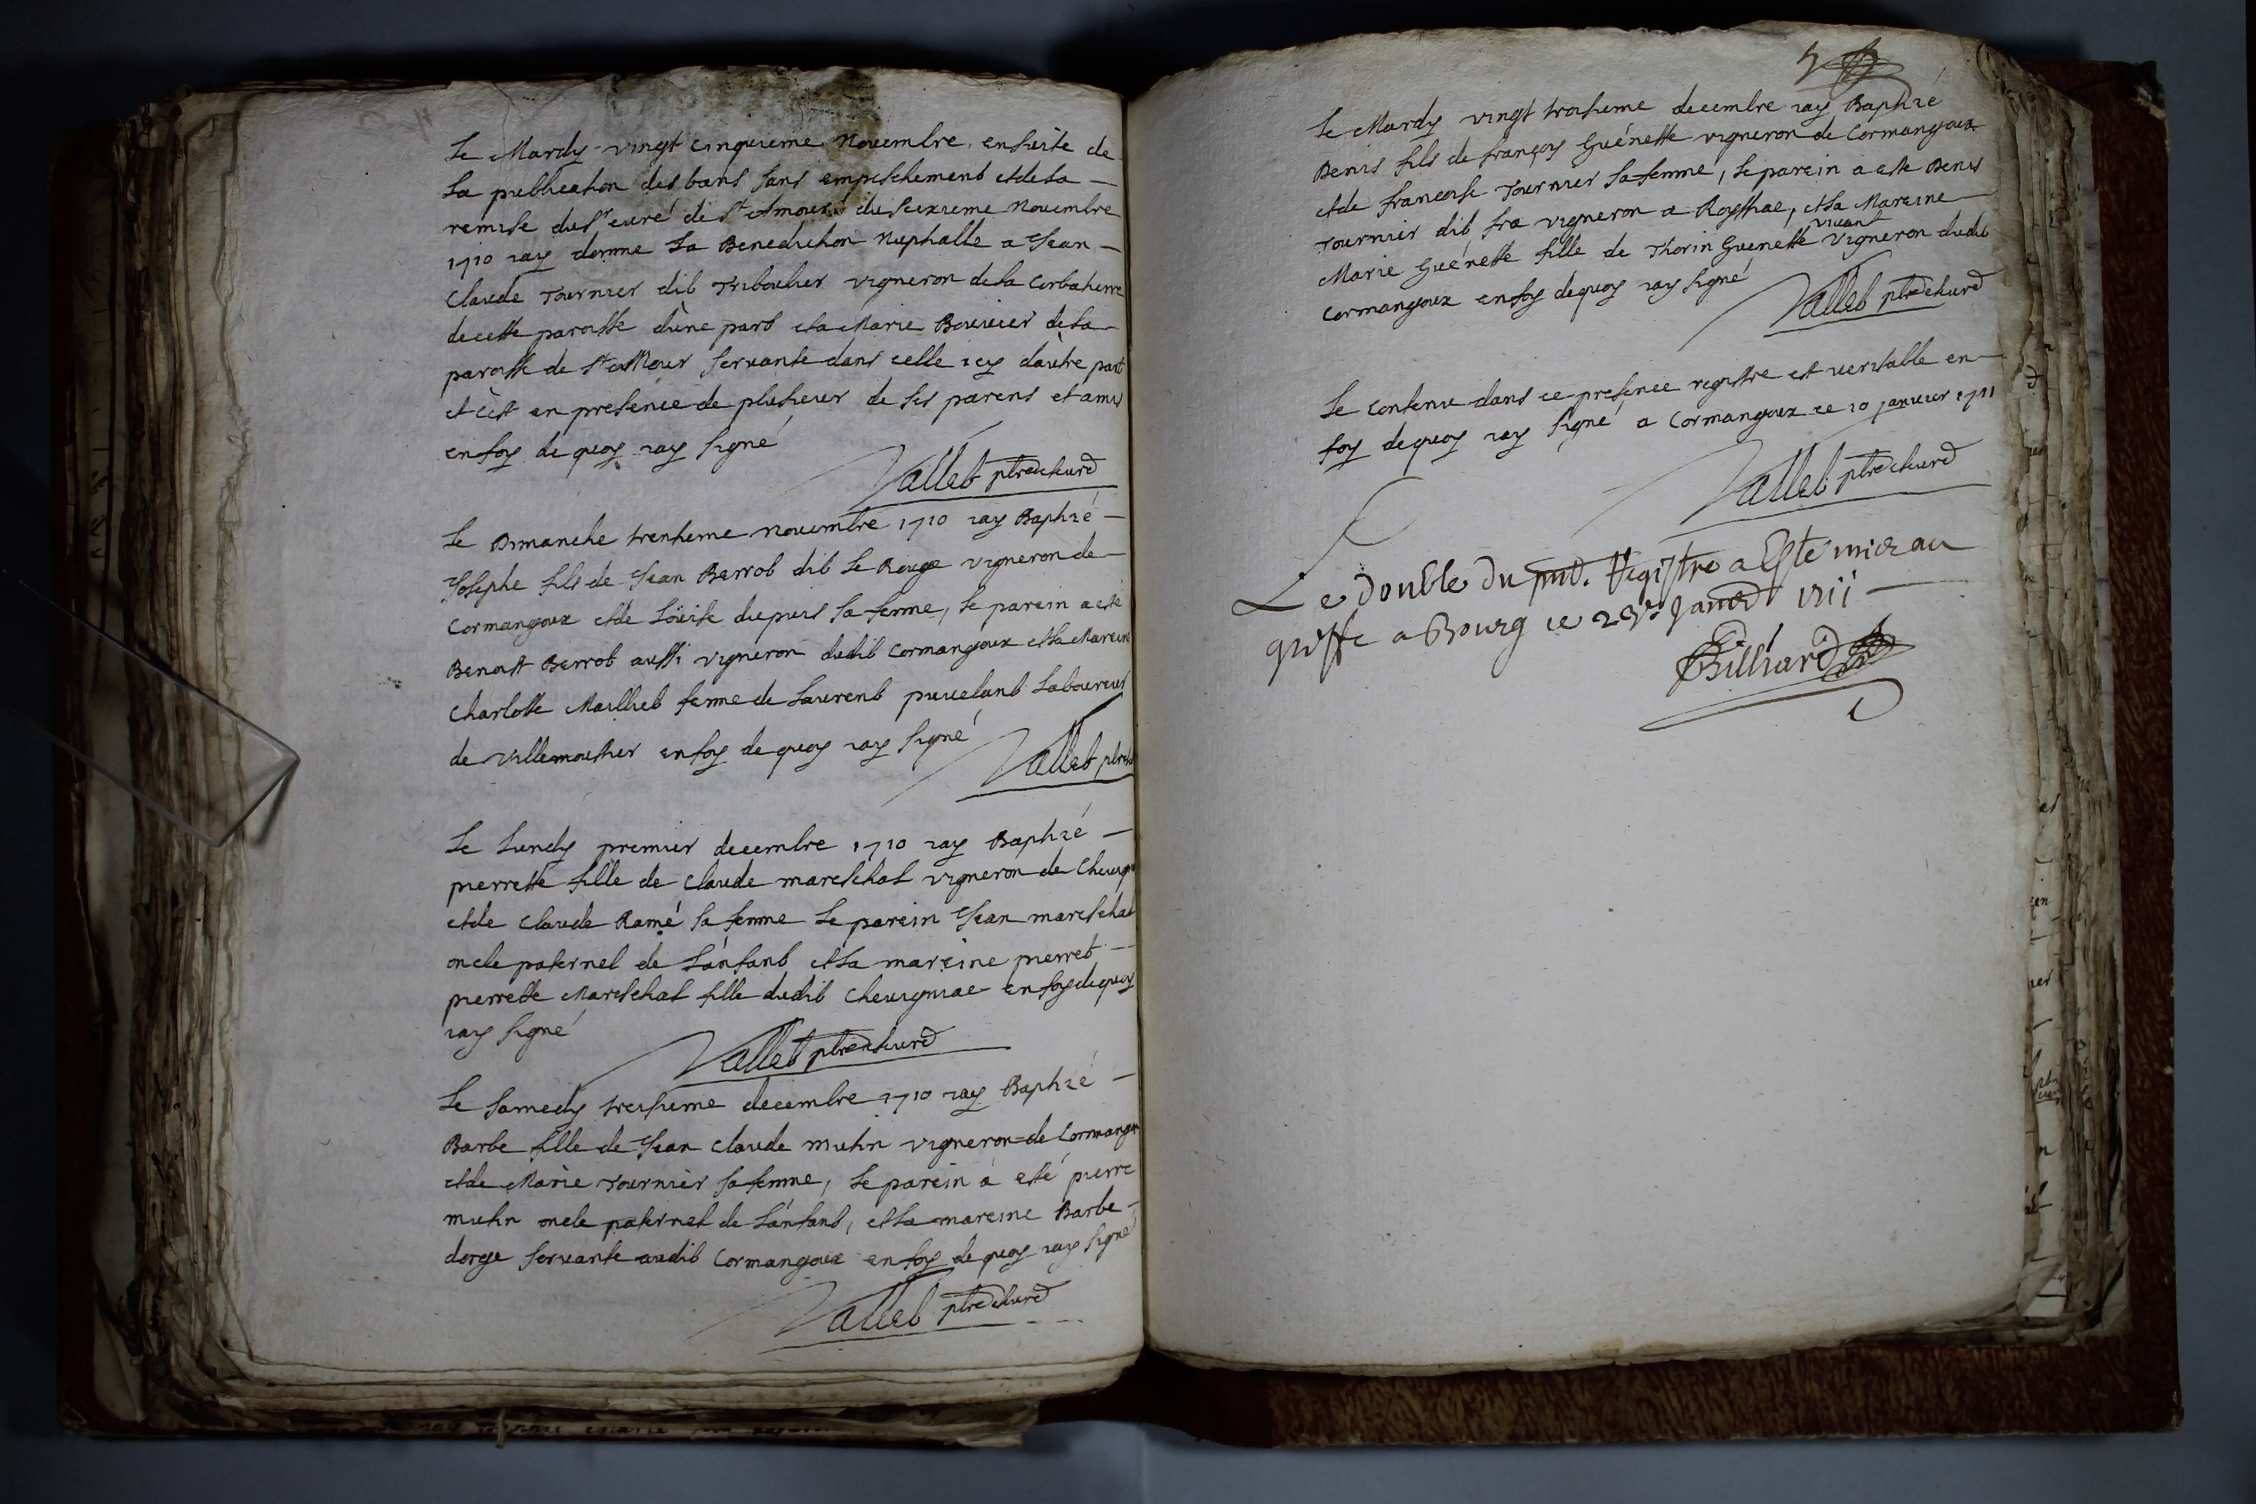 Le Mardy vingt cinquieme Novembre ensuite de
La publication des bans sans empeschement et de La
remise du Sr curé de St Amour du seixieme Novembre
1710 iay donné La Benediction Nuptialle a Jean
Claude Tournier dit Triboulier vigneron de La Corbatiere
de cette paroisse d'une part et a Marie Bouvier de La
paroisse de St Amour servante dans celle icy d'autre part
et c'est en presence de plusieur de ses parens et amis
en foy de quoy iay signé
Vallet ptre et curé
Le Dimanche trentieme novembre 1710 iay Baptizé
Josephe fils de Jean Berrot dit Le Rouge vigneron de
Cormangoux et de Loüise dupuis sa femme, Le parein a esté
Benoist Berrot aussi vigneron dudit Cormangoux et La Mareine
Charlotte Maillet femme de Laurent puvelant Laboureur
de Villemoutier en foy de quoy iay signé
Vallet ptre
Le Lundy premier decembre 1710 iay Baptizé
pierrette fille de Claude mareschal vigneron de
et de Claude Ramé sa femme Le parein Jean mareschal
oncle paternel de L'enfant et La mareine pierret
pierrette Mareschal fille dudit Chevigniac en foy de quoy
iay signé
Vallet ptre et curé
Le Samedy treisieme decembre 1710 iay Baptizé
Barbe fille de Jean Claude mutin vigneron de Cormangoux
et de Marie Tournier sa femme, Le parein a esté pierre
mutin oncle paternel de L'enfant, et La mareine Barbe
dorge servante audit Cormangoux en foy de quoy iay signé
Vallet ptre et curé
5
Le Mardy vingt troisieme decembre iay Baptizé
Denis fils de françois Guénette vigneron de Cormangoux
et de francoise Tournier sa femme, Le parein a esté Denis
Tournier dit fra vigneron a Roissiac, et La Mareine
Marie Guénette fille de Thorin Guenette vivant vigneron dudit
Cormangoux en foy de quoy iay signé
Vallet ptre et curé
Le contenu dans ce presence registre est veritable en
foy de quoy iay signé a Cormangoux ce 10 janvier 1711
Vallet ptre et curé
Le double du pnt. Registre a Esté mis au
greffe a Bourg ce janer 1711
Billiard